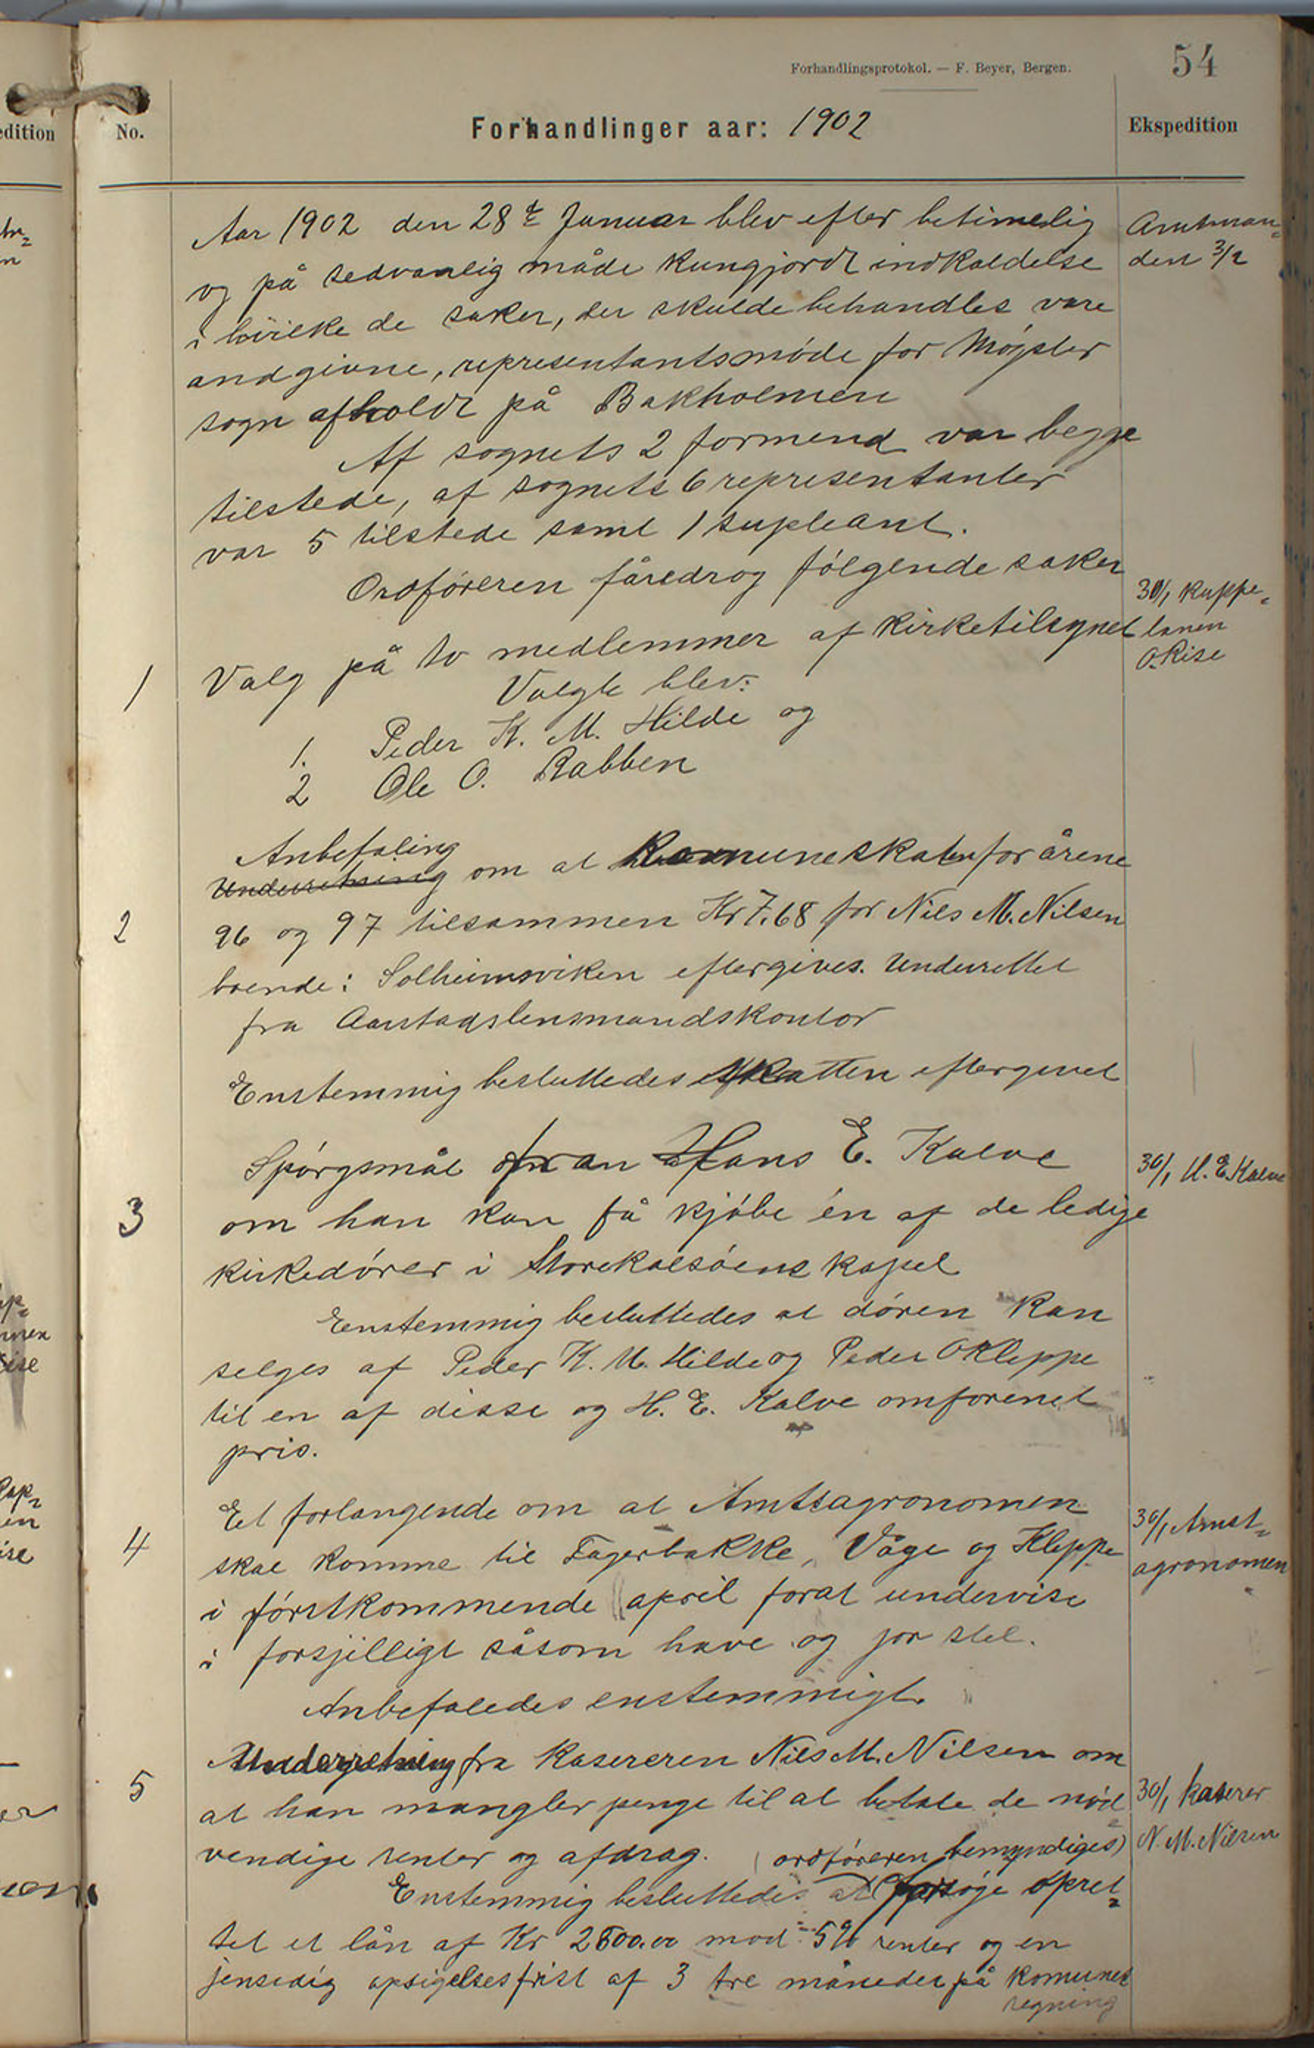 Forhandlingsprotokol. — F. Beyer, Bergen.
54
edition
No.
Forhandlinger aar: 1902
Ekspedition
Aar 1902 den 28de Januar blev efter betimelig
og på sedvanlig måde kungjordt indkaldelse
i hvilke de saker, der skulde behandles vare
andgivne, representantsmøde for Møgster
sogn afholdt på Bakholmen
Amtman-
den 3/2
Af sognets 2 formend var begge
tilstede, af sognets 6 representanter
var 5 tilstede samt 1 supleant.
Ordføreren fåredrog følgende saker
1
Valg på to medlemmer af kirketilsynet
30/1 kappe-
lanen
O. Rise
Valgte blev:
1. Peder K. M. Hilde og
2 Ole O. Rabben
Anbefaling
2
Underretning om at Komuneskaten for årene
96 og 97 tilsammen Kr 7.68 for Nils M. Nilsen
boende i Solheimsviken eftergives. Underrettet
fra Aarstadslensmandskontor
Enstemmig besluttedes skatten eftergivet
3
Spørgsmål fra Hans E. Kalve
om han kan få kjøbe én af de ledige
kirkedører i Storekalsøens kapel
30/1 H. E. Kalve
Enstemmig besluttedes at døren kan
selges af Peder K. M. Hilde og Peder O Kleppe
til en af disse og H. E. Kalve omforenet
pris.
4
Et forlangende om at Amtsagronomen
skal komme til Fagerbakke, Våge og Kleppe
i førstkommende april forat undervise
i forsjilligt såsom have og jor stel.
30/1 Amst-
agronomen
Anbefaledes enstemmigt.
5
Underretning fra kasereren Nils M. Nilsen om
at han mangler penge til at betale de nød
vendige renter og afdrag.
30/1 kaserer
N. M. Nilsen
(ordføreren bemyndiges)
Enstemmig besluttedes at forsøge opret-
tet et lån af Kr 2600.00 mod 5% renter og en
jensedig opsigelsesfrist af 3 tre måneder på komunes
regning